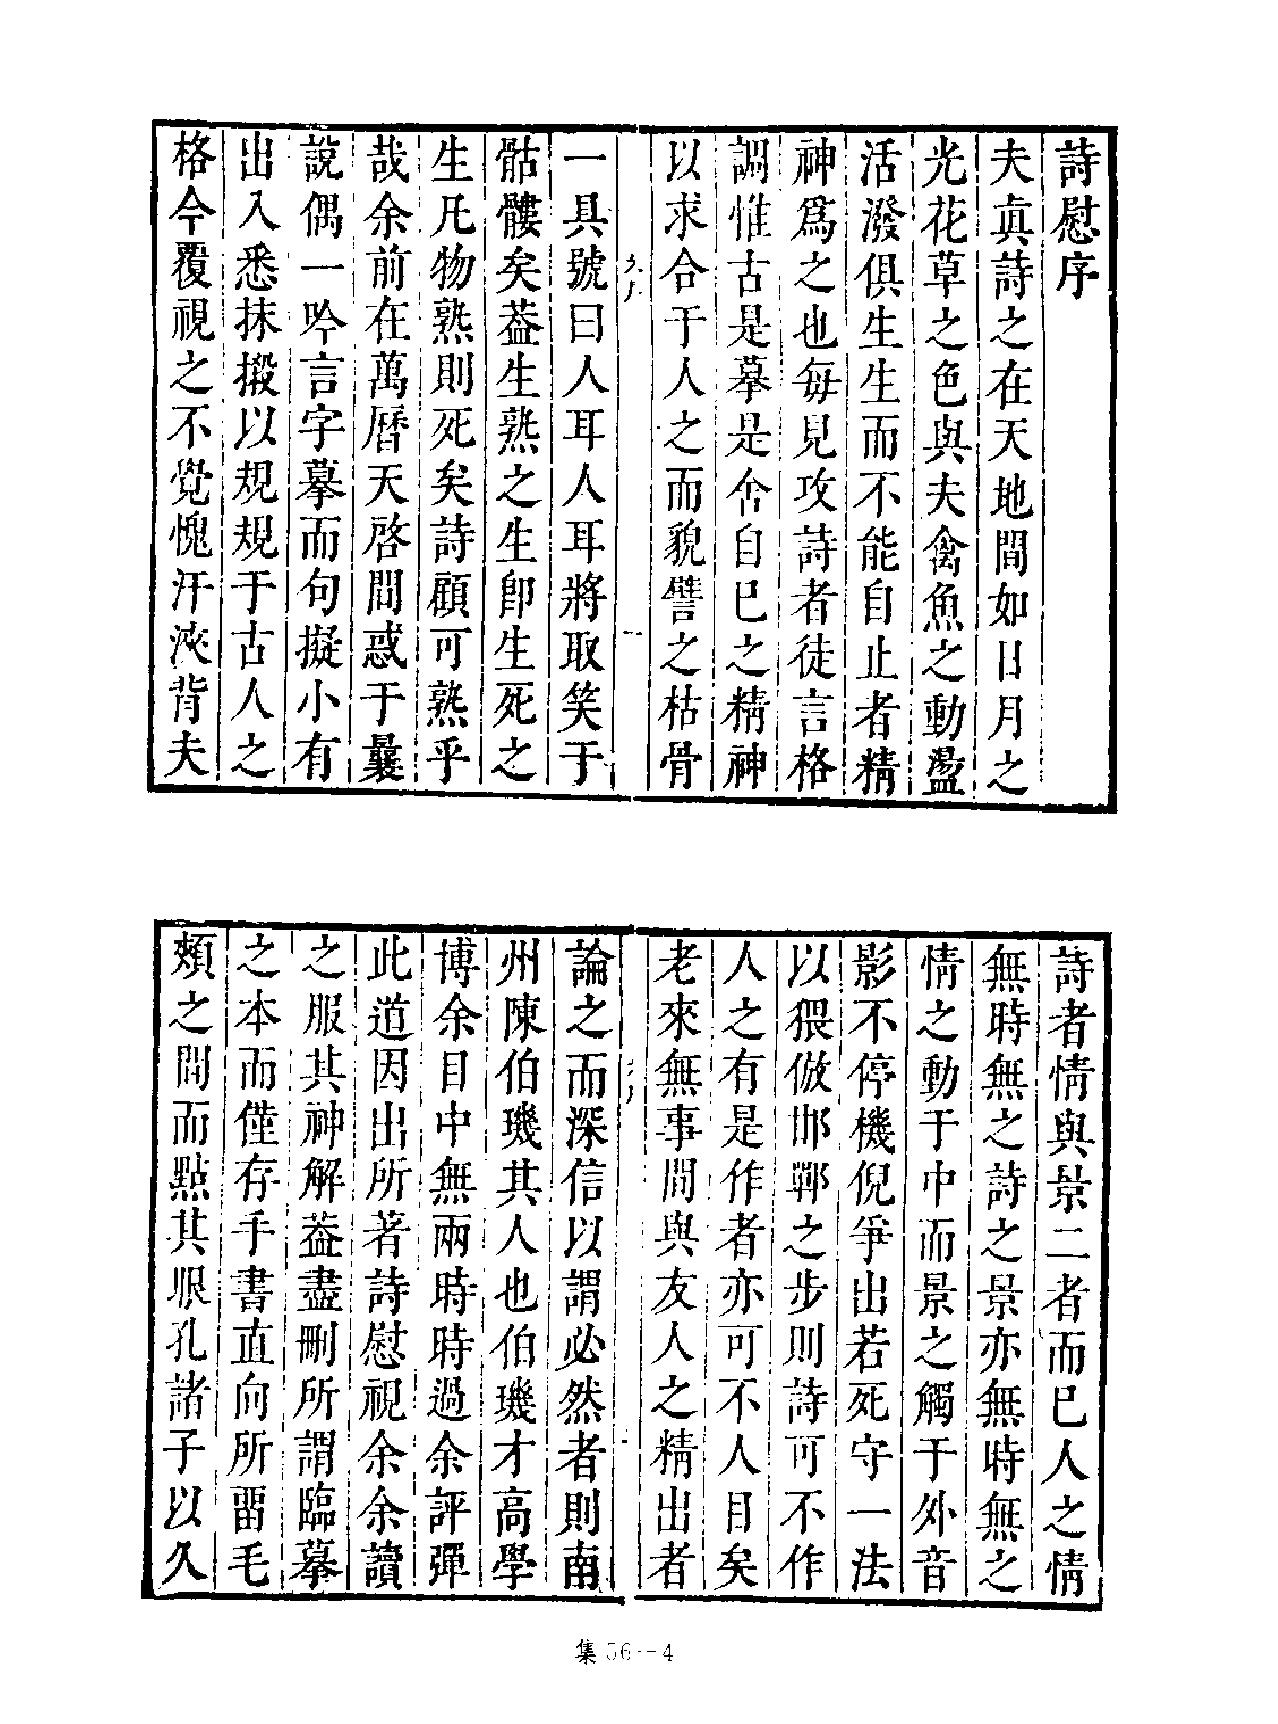 詩慰序
夫眞詩之在天地間如日月之
光花草之色與夫禽魚之動盪
活潑俱生生而不能自止者精
神爲之也每見攻詩者徒言格
調惟古是摹是舍自巳之精神
以求合于人之而貌譬之枯骨
一具號曰人耳人耳將取笑于
骷髏矣葢生熟之生卽生死之
生凡物熟則死矣詩顧可熟乎
哉余前在萬曆天啓間惑于曩
說偶一吟言字摹而句擬小有
出入悉抹搬以規規于古人之
格今覆視之不覺愧汗浹背夫
詩者情與景二者而巳人之情
無時無之詩之景亦無時無之
情之動于中而景之觸于外音
影不停機倪爭出若死守一法
以猥倣邯鄲之步則詩可不作
人之有是作者亦可不人目矣
老來無事間與友人之精出者
論之而深信以謂必然者則南
州陳伯璣其人也伯璣才高學
博余目中無兩時時過余評彈
此道因出所著詩慰視余余讀
之服其神解葢盡刪所謂臨摹
之本而僅存手書直向所畱毛
頰之間而點其眼孔諸子以久
集 56—4